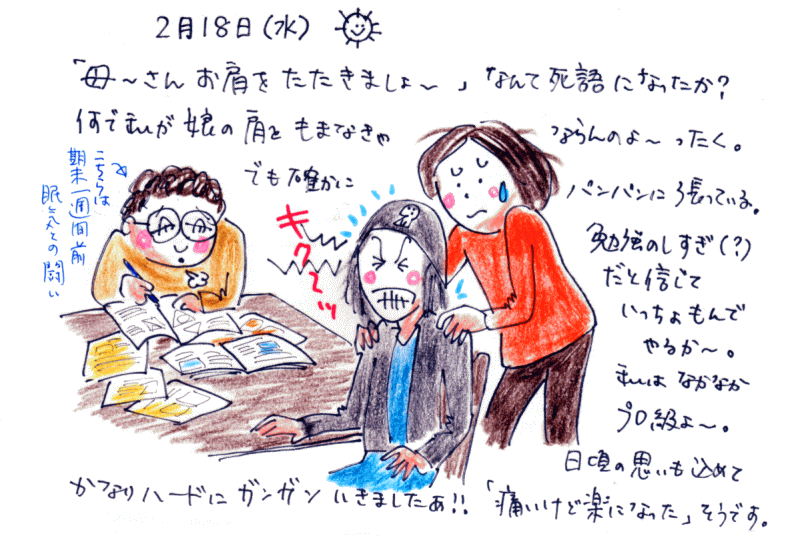 2月18日(水)
「母〜さんお肩をたたきましょ〜」なんて死語になったか?
何で私が娘の肩をもまなきゃ
ならんのよ〜ったく。
でも確かに
パンパンに張っている。
勉強のしすぎ(?)
だと信じて
いっちょもんで
やるか〜。
私はなかなか
プロ級よ〜。
日頃の思いも込めて
かなりハードにガンガンいきましたぁ!!「痛いけど楽になった」そうです。
こちらは
期末一週間前
眠気との闘い
キク〜ッ